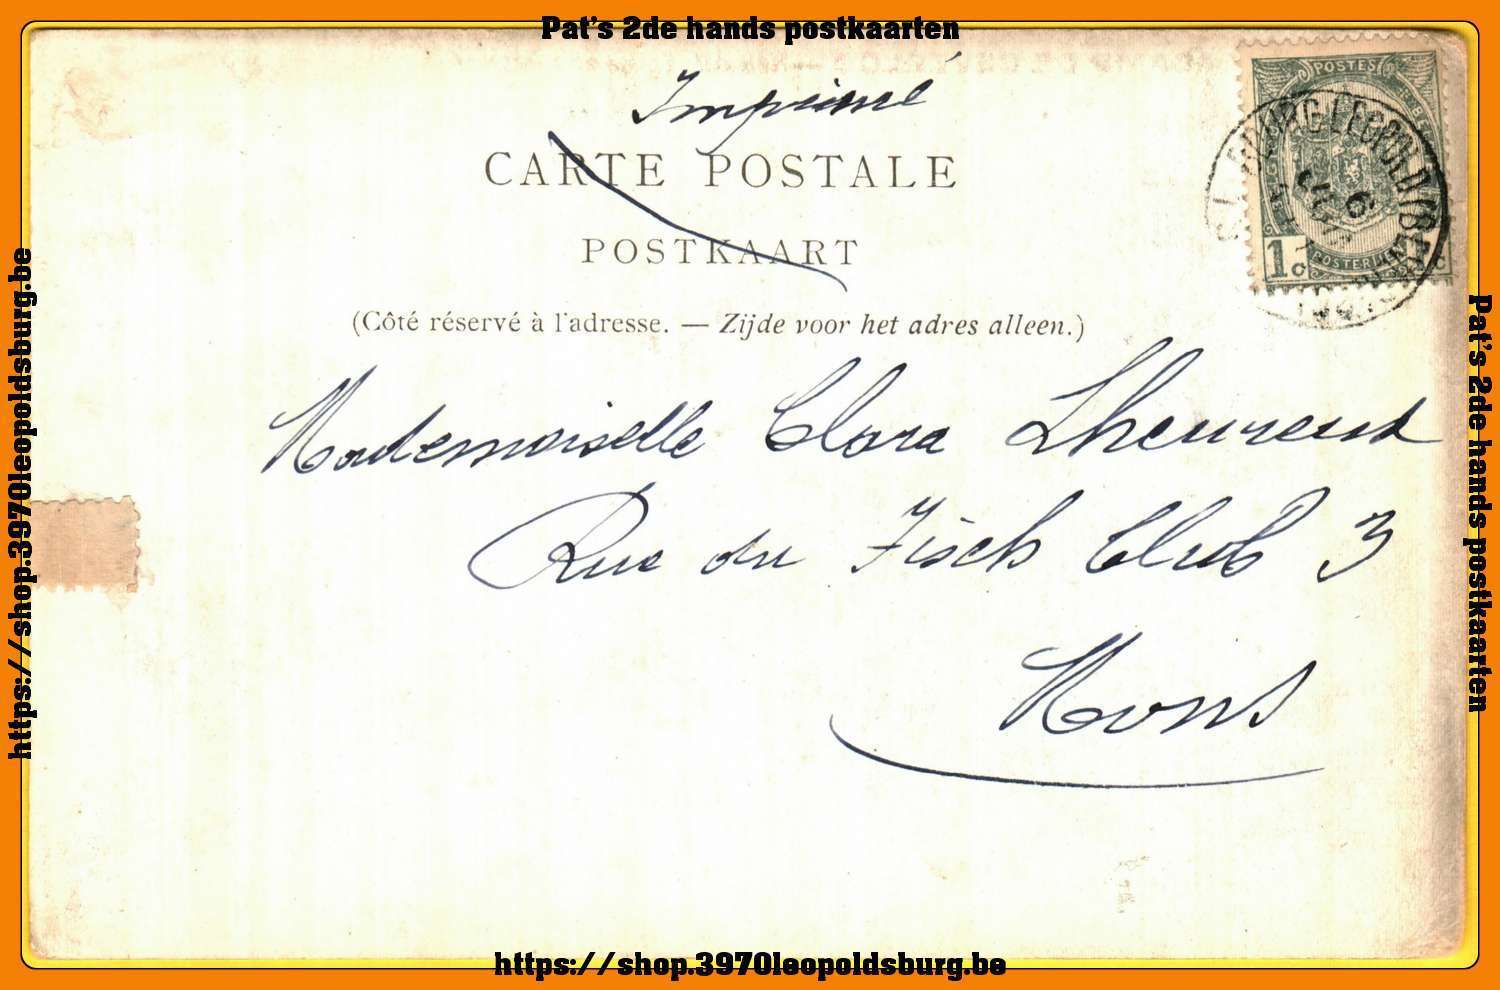 Pat's 2de hands postkaarten
Imprimé
CARTE POSTALE
POSTKAART
(Côté réservé à l'adresse. — Zijde voor het adres alleen.)
POSTES
1c
POSTERIJEN
BOURG-LEOPOLD (CAMP)
6
Mademoiselle Clara Lheureux
Rue du Fisch Club 3
Mons
https://shop.3970leopoldsburg.be
Pat's 2de hands postkaarten
https://shop.3970leopoldsburg.be